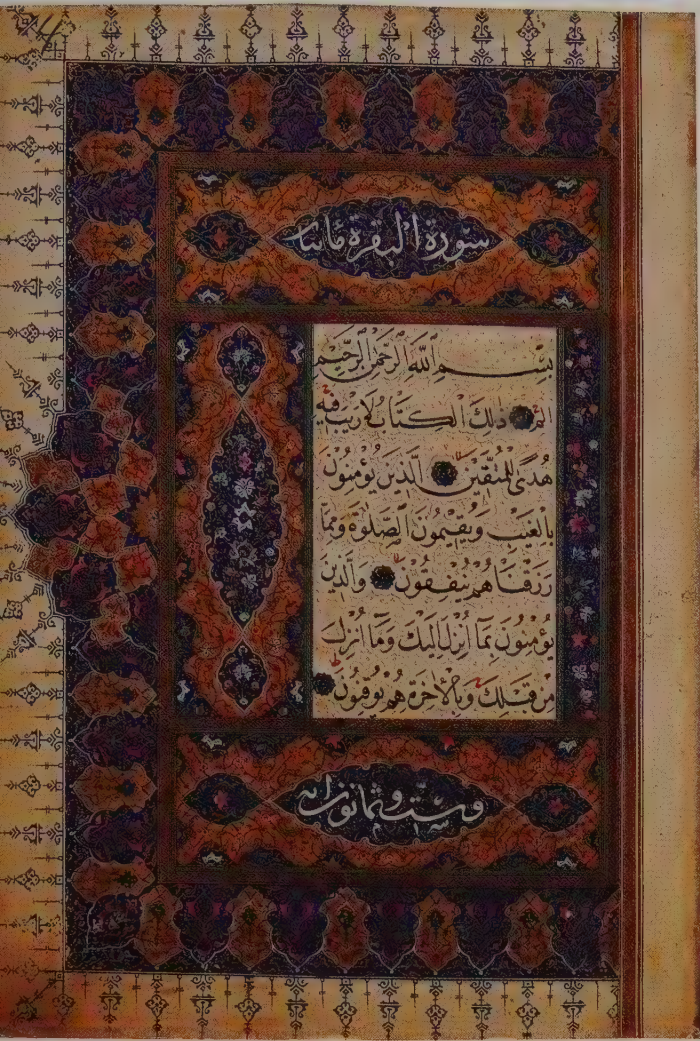 سورة البقرة مائتا
بِسْمِ اللَّهِ الرَّحْمَٰنِ الرَّحِيمِ
الم ذَٰلِكَ الْكِتَابُ لَا رَيْبَ فِيهِ
هُدًى لِلْمُتَّقِينَ الَّذِينَ يُؤْمِنُونَ
بِالْغَيْبِ وَيُقِيمُونَ الصَّلَوٰةَ وَمِمَّا
رَزَقْنَاهُمْ يُنْفِقُونَ وَالَّذِينَ
يُؤْمِنُونَ بِمَا أُنْزِلَ إِلَيْكَ وَمَا أُنْزِلَ
مِنْ قَبْلِكَ وَبِالْآخِرَةِ هُمْ يُوقِنُونَ
وست وثمانون آية